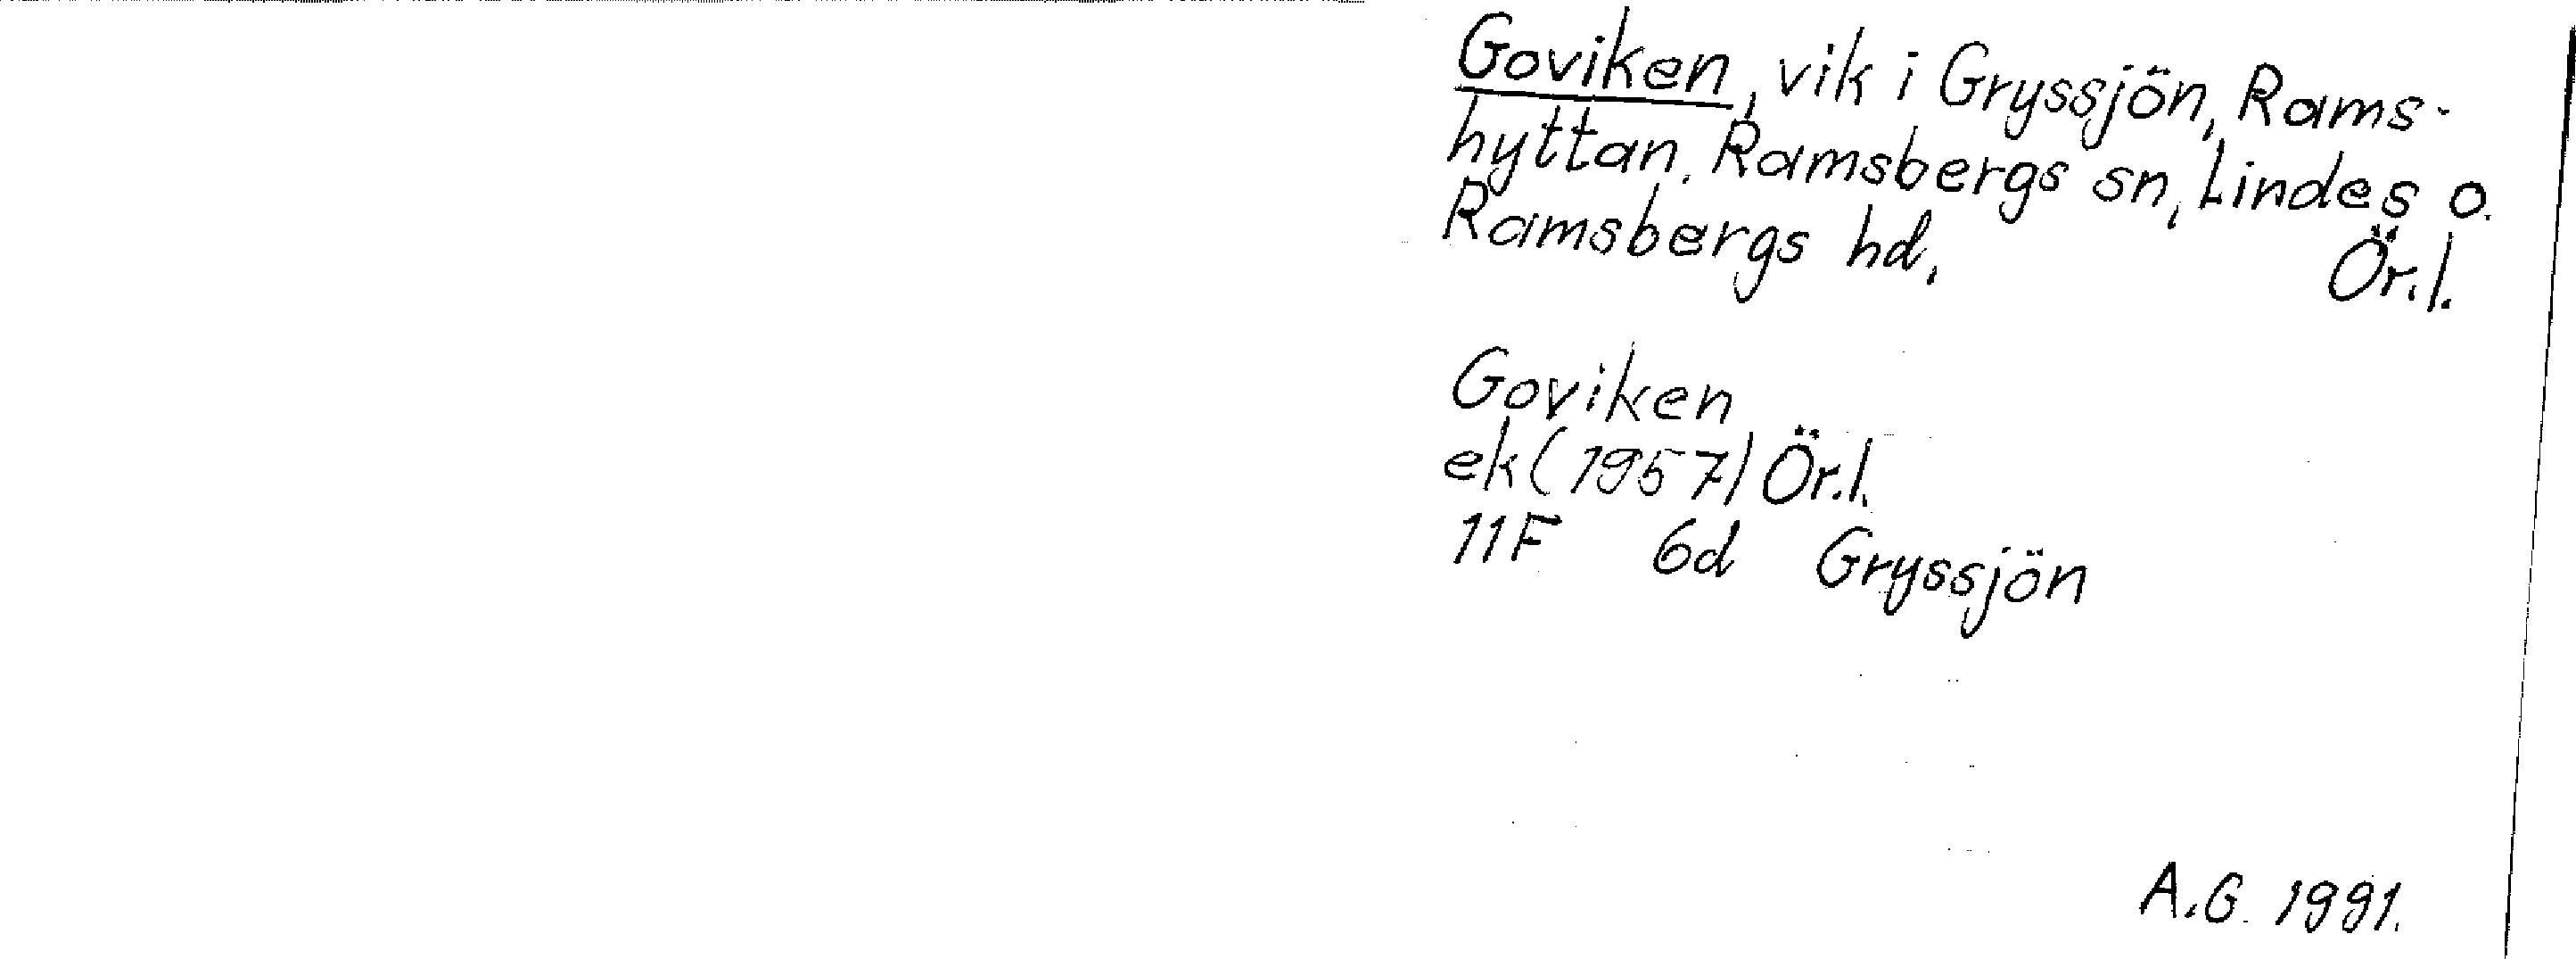 Goviken, vik i Gryssjön, Rams-
hyttan. Ramsbergs sn, Lindes o.
Ramsbergs hd, Ör.l.
Goviken
ek (1957) Ör.l.
11F 6d Gryssjön
A.G. 1991.